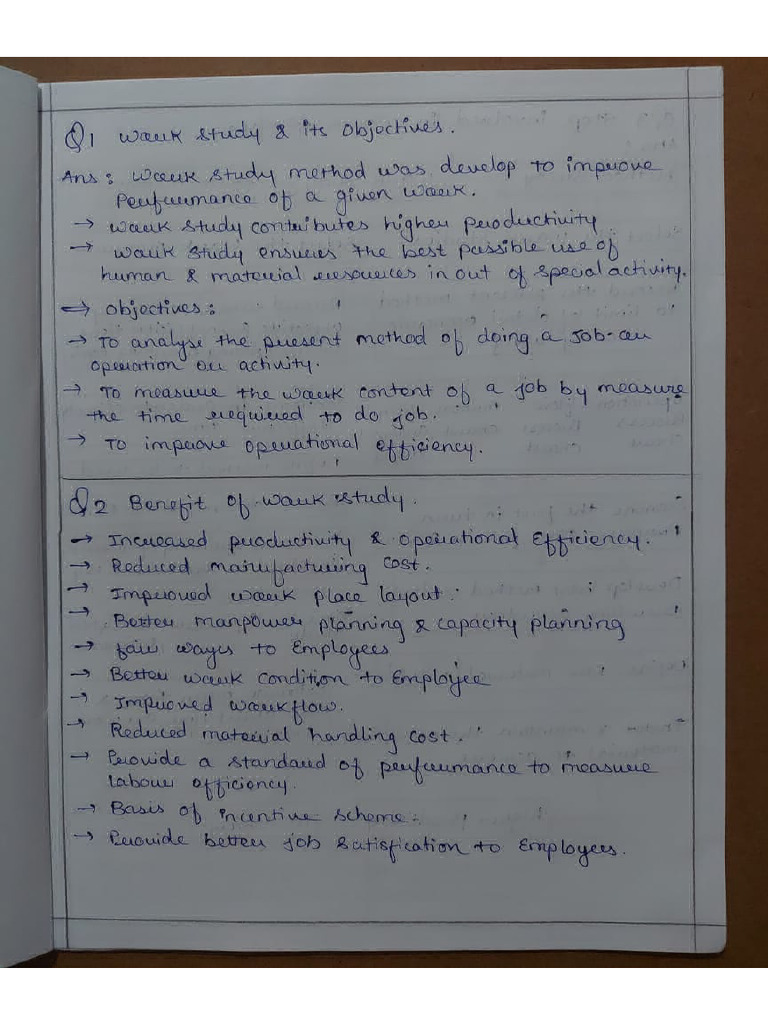 Q1 Work study & its Objectives.
Ans : Work study method was develop to improve
Performance of a given work.
→ Work study contributes higher productivity
→ Work study ensures the best possible use of
human & material resources in out of special activity.
⇒ Objectives :
→ To analyse the present method of doing a Job-or
operation or activity.
→ To measure the work content of a job by measure
the time required to do job.
→ To improve operational efficiency.
Q2 Benefit of work study.
→ Increased productivity & operational Efficiency.
→ Reduced manufacturing cost.
→ Improved work place layout.
→ Better manpower planning & capacity planning
→ fair wages to Employees
→ Better work condition to Employee
→ Improved workflow.
→ Reduced material handling cost.
→ Provide a standard of performance to measure
labour efficiency.
→ Basis of incentive scheme.
→ Provide better job satisfication to Employees.